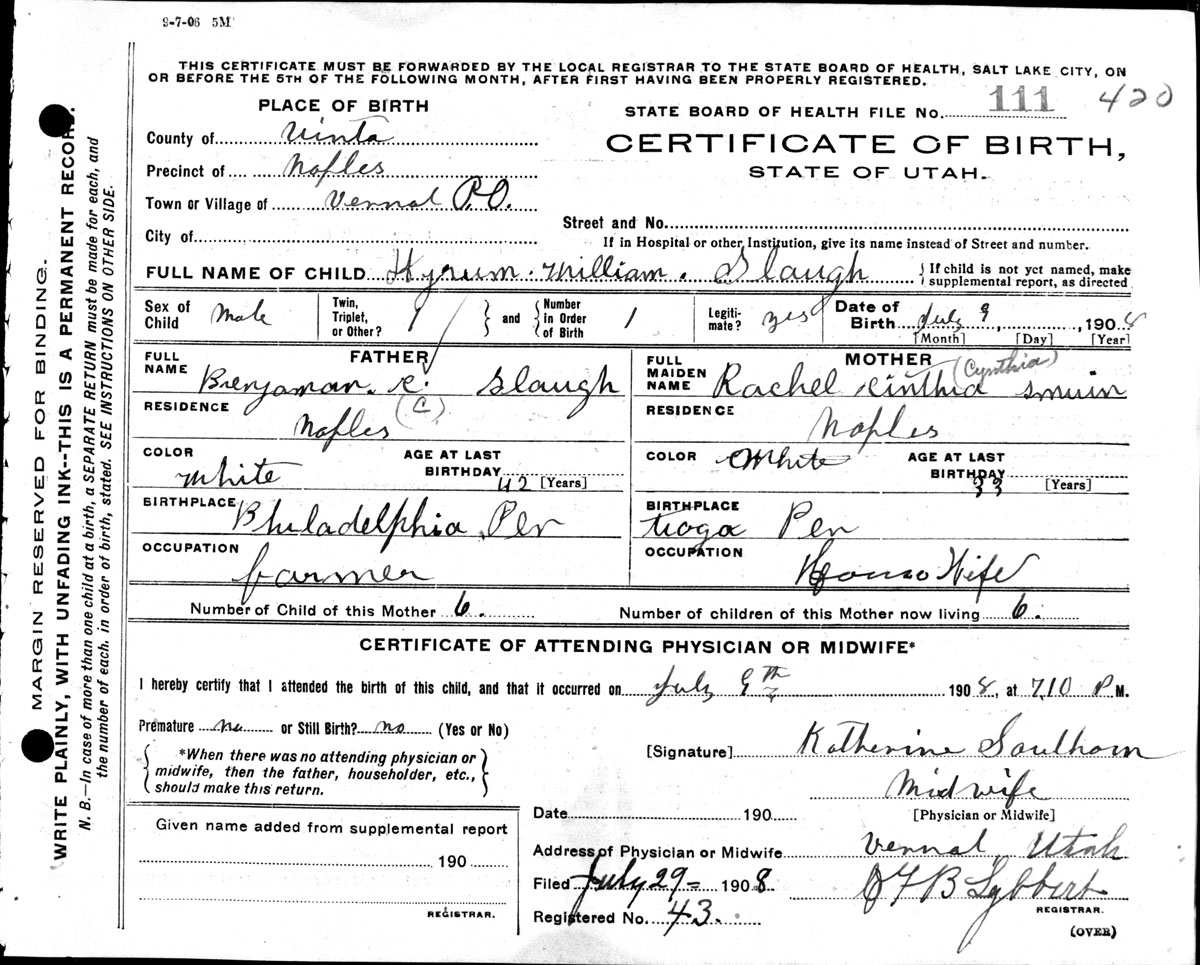 9-7-06 5M
THIS CERTIFICATE MUST BE FORWARDED BY THE LOCAL REGISTRAR TO THE STATE BOARD OF HEALTH, SALT LAKE CITY, ON
OR BEFORE THE 5TH OF THE FOLLOWING MONTH, AFTER FIRST HAVING BEEN PROPERLY REGISTERED.
PLACE OF BIRTH
STATE BOARD OF HEALTH FILE No. 111 420
County of Uinta
CERTIFICATE OF BIRTH,
Precinct of Naples
STATE OF UTAH.
Town or Village of Vernal P.O.
Street and No.
City of
If in Hospital or other Institution, give its name instead of Street and number.
FULL NAME OF CHILD Hyrum William Slaugh { If child is not yet named, make
supplemental report, as directed
Sex of Child Male Twin, Triplet, or Other? 1 } and { Number in Order of Birth 1 Legiti-mate? yes Date of Birth July 9, 1908
[Month] [Day] [Year]
FATHER
FULL NAME Benjaman. e. Slaugh
(C)
RESIDENCE
Naples
COLOR White AGE AT LAST BIRTHDAY 42 [Years]
BIRTHPLACE Philadelphia Pen
OCCUPATION
farmer
MOTHER
(Cynthia)
FULL MAIDEN NAME Rachel Cinthia Smuin
RESIDENCE
Naples
COLOR White AGE AT LAST BIRTHDAY 33 [Years]
BIRTHPLACE
tioga Pen
OCCUPATION
House Wife
Number of Child of this Mother 6. Number of children of this Mother now living 6.
CERTIFICATE OF ATTENDING PHYSICIAN OR MIDWIFE*
I hereby certify that I attended the birth of this child, and that it occurred on July 9th 1908, at 7.10 P M.
Premature no or Still Birth? no (Yes or No)
*When there was no attending physician or
midwife, then the father, householder, etc.,
should make this return.
[Signature] Katherine
Midwife
[Physician or Midwife]
Given name added from supplemental report
190
REGISTRAR.
Date 190
Address of Physician or Midwife Vernal, Utah
Filed July 29 1908 Lybbert
REGISTRAR.
Registered No. 43.
(OVER)
MARGIN RESERVED FOR BINDING.
WRITE PLAINLY, WITH UNFADING INK--THIS IS A PERMANENT RECORD.
N. B.—In case of more than one child at a birth, a SEPARATE RETURN must be made for each, and
the number of each, in order of birth, stated. SEE INSTRUCTIONS ON OTHER SIDE.